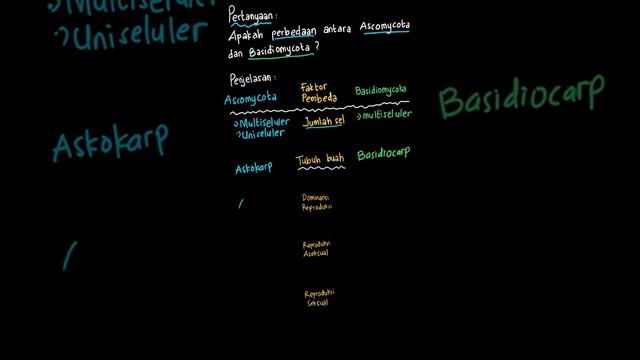 Multiseluler
Uniseluler
Askokarp
Pertanyaan :
Apakah perbedaan antara Ascomycota
dan Basidiomycota ?
Penjelasan :
Ascomycota Faktor Pembeda Basidiomycota
Multiseluler Jumlah sel Multiseluler
Uniseluler
Askokarp Tubuh buah Basidiocarp
Dominansi
Reproduksi
Reproduksi
Aseksual
Reproduksi
Seksual
Basidiocarp